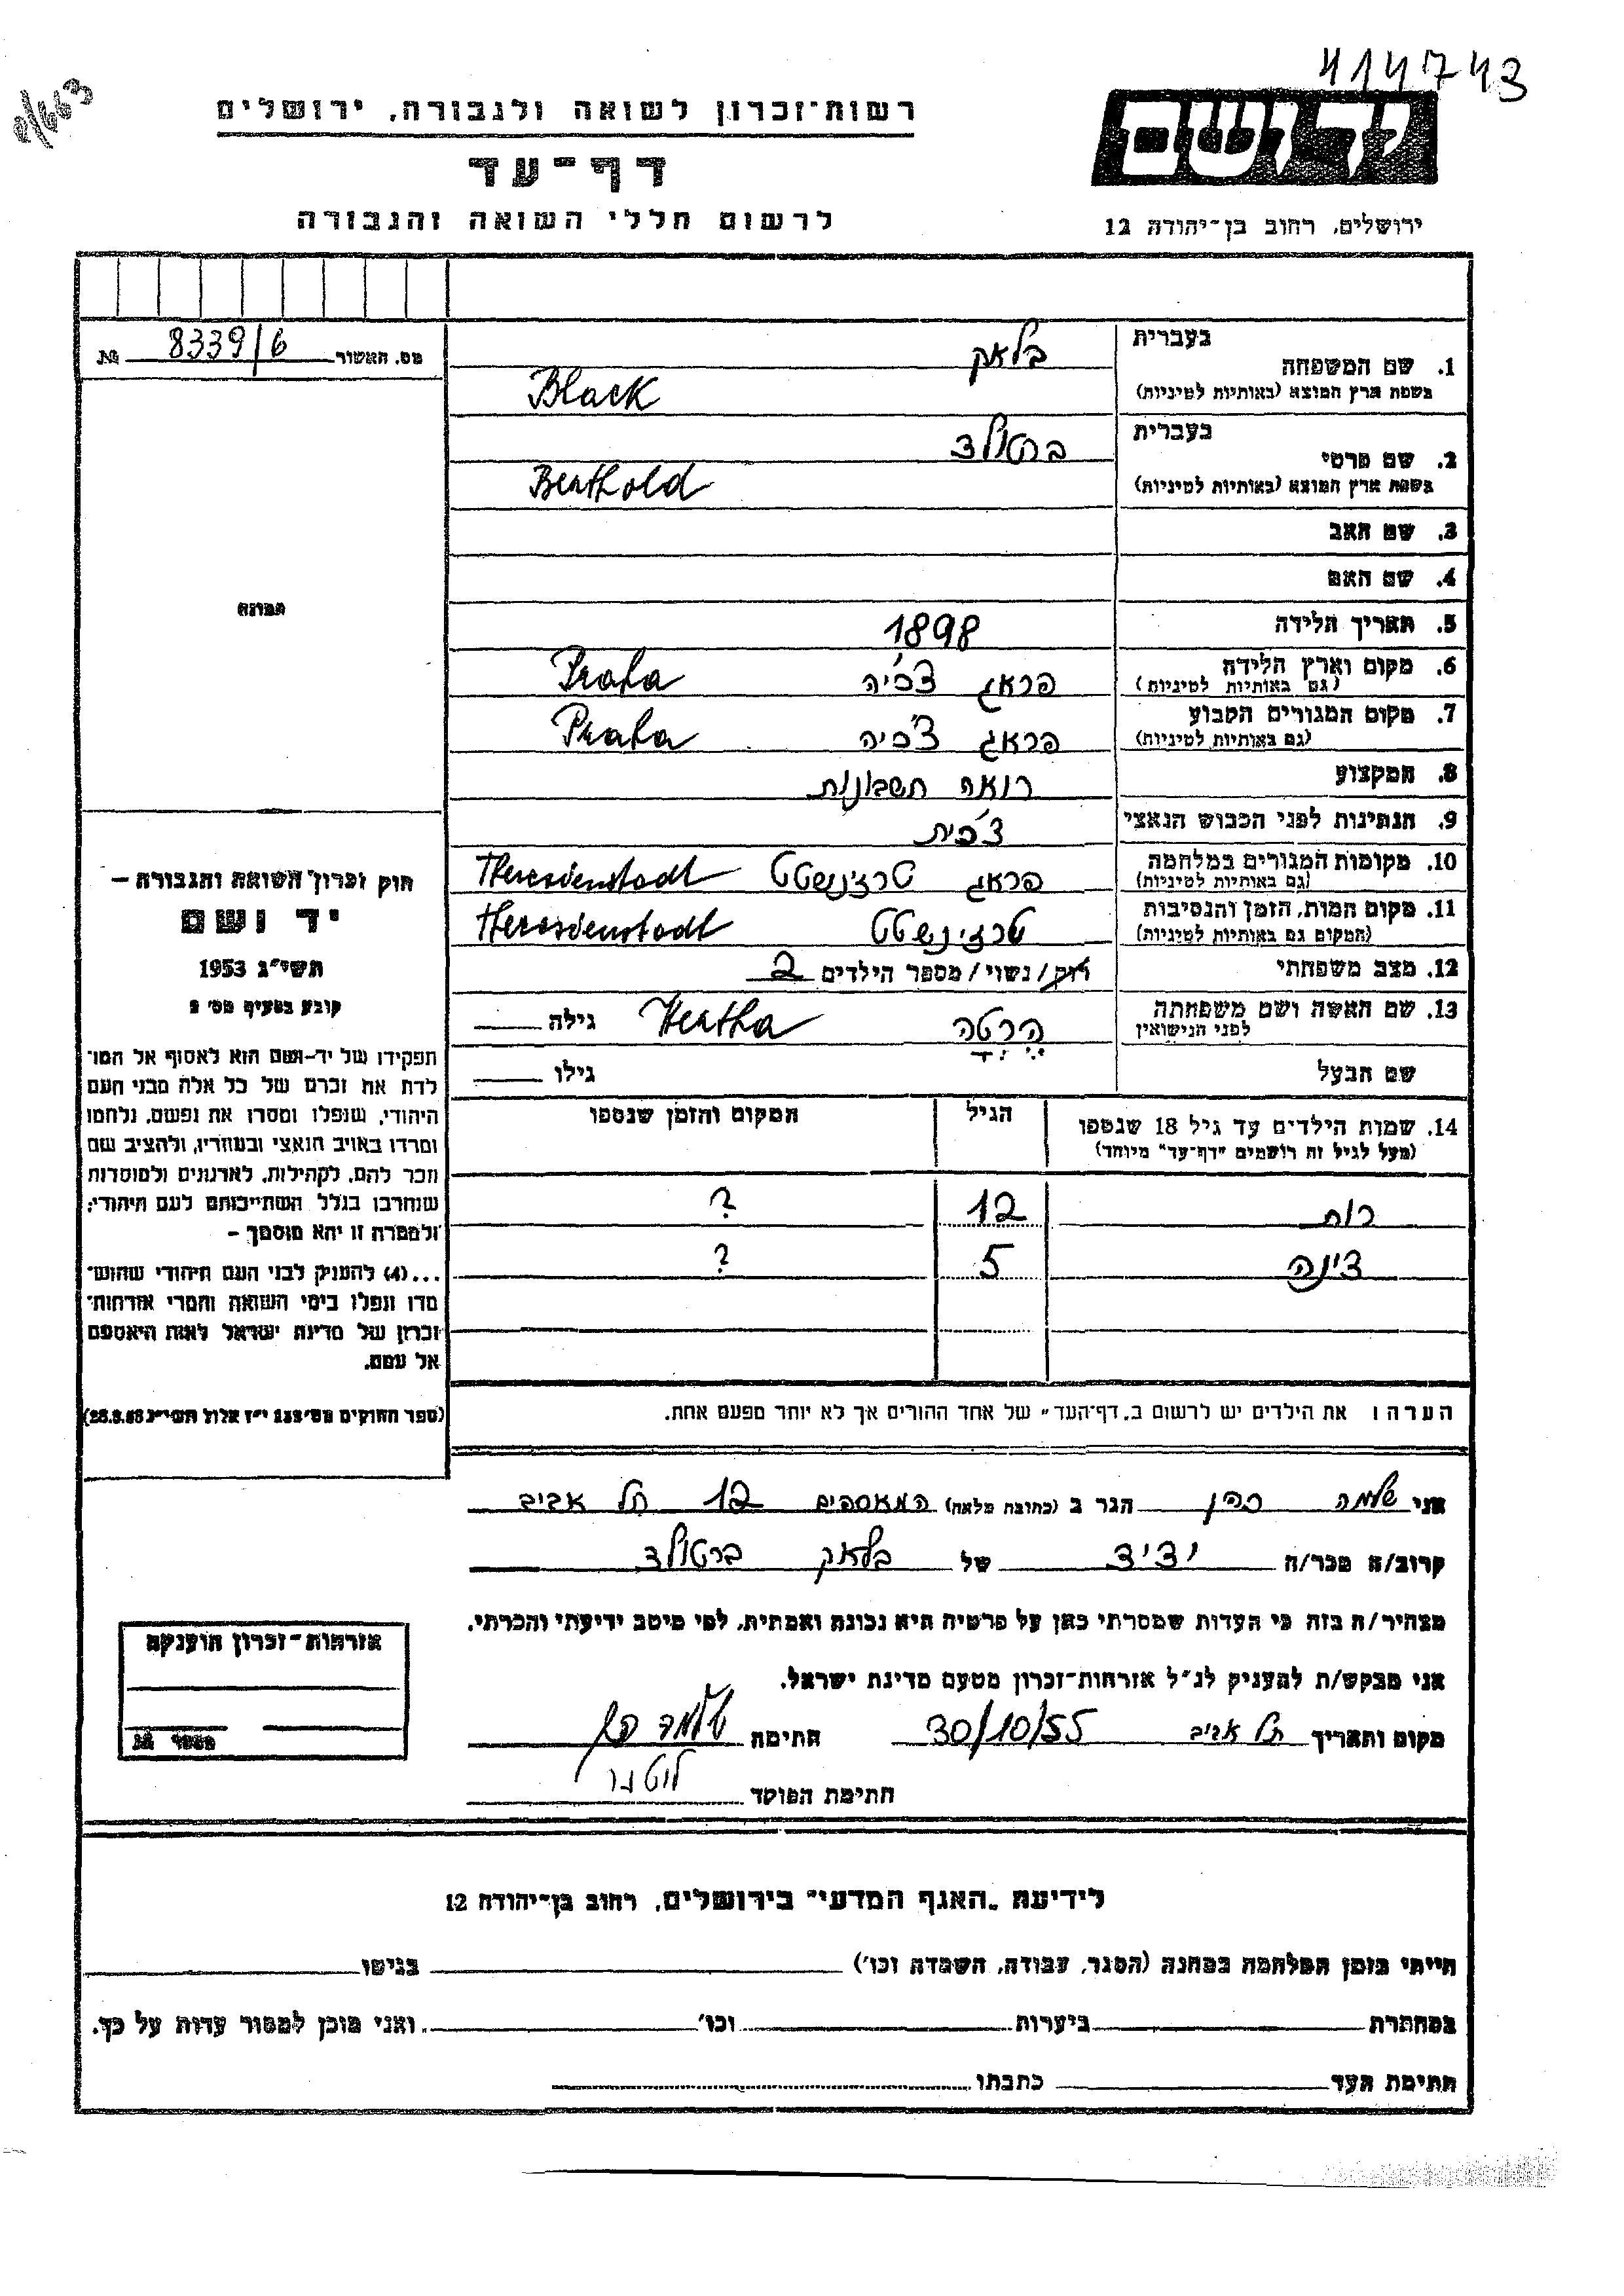 414743
רשות-זכרון לשואה ולגבורה, ירושלים
יד ושם
דף-עד
לרשום חללי השואה והגבורה
ירושלים, רחוב בן-יהודה 12
מס. האשור 8339/6 №
בעברית בלאק
1. שם המשפחה
בשפת ארץ המוצא (באותיות לטיניות) Black
בעברית ברטולד
2. שם פרטי
בשפת ארץ המוצא (באותיות לטיניות) Berthold
3. שם האב
4. שם האם
תמונה
5. תאריך הלידה 1898
6. מקום וארץ הלידה פראג צ'כיה Praha
(גם באותיות לטיניות)
7. מקום המגורים הקבוע פראג צ'כיה Praha
(גם באותיות לטיניות)
8. המקצוע רואה חשבונות
9. הנתינות לפני הכבוש הנאצי צ'כית
10. מקומות המגורים במלחמה פראג טרזינשטט Theresienstadt
(גם באותיות לטיניות)
11. מקום המות, הזמן והנסיבות טרזינשטט Theresienstadt
(המקום גם באותיות לטיניות)
12. מצב משפחתי רוק/נשוי/מספר הילדים 2
13. שם האשה ושם משפחתה הֶרְטָה Hertha גילה
לפני הנישואין
שם הבעל גילו
14. שמות הילדים עד גיל 18 שנספו הגיל המקום והזמן שנספו
(מעל לגיל זה רושמים "דף-עד" מיוחד)
רות 12 ?
דינה 5 ?
הערה: את הילדים יש לרשום ב„דף-העד" של אחד ההורים אך לא יותר מפעם אחת.
חוק זכרון השואה והגבורה –
יד ושם
תשי"ג 1953
קובע בסעיף מס' 2
תפקידו של יד-ושם הוא לאסוף אל המו־
לדת את זכרם של כל אלה מבני העם
היהודי, שנפלו ומסרו את נפשם, נלחמו
ומרדו באויב הנאצי ובעוזריו, ולהציב שם
וזכר להם, לקהילות, לארגונים ולמוסדות
שנחרבו בגלל השתייכותם לעם היהודי;
ולמטרה זו יהא מוסמך –
...(4) להעניק לבני העם היהודי שהוש־
מדו ונפלו בימי השואה והמרי אזרחות־
זכרון של מדינת ישראל לאות היאספם
אל עמם.
(ספר החוקים מס' 132 י"ז אלול תשי"ג 28.8.53)
אני שלמה כהן הגר ב (כתובת מלאה) המאספים 12 תל אביב
קרוב/ה מכר/ה ידיד של בלאק ברטולד
מצהיר/ה בזה כי העדות שמסרתי כאן על פרטיה היא נכונה ואמתית, לפי מיטב ידיעתי והכרתי.
אני מבקש/ת להעניק לנ"ל אזרחות-זכרון מטעם מדינת ישראל.
מקום ותאריך תל אביב 30/10/55 חתימה שלמה כהן
חתימת הפוקד
אזרחות-זכרון הוענקה
מספר №
לידיעת „האגף המדעי" בירושלים, רחוב בן-יהודה 12
הייתי בזמן המלחמה במחנה (הסגר, עבודה, השמדה וכו') בגיטו
במחתרת ביערות וכו' ואני מוכן למסור עדות על כך.
חתימת העד כתבתו